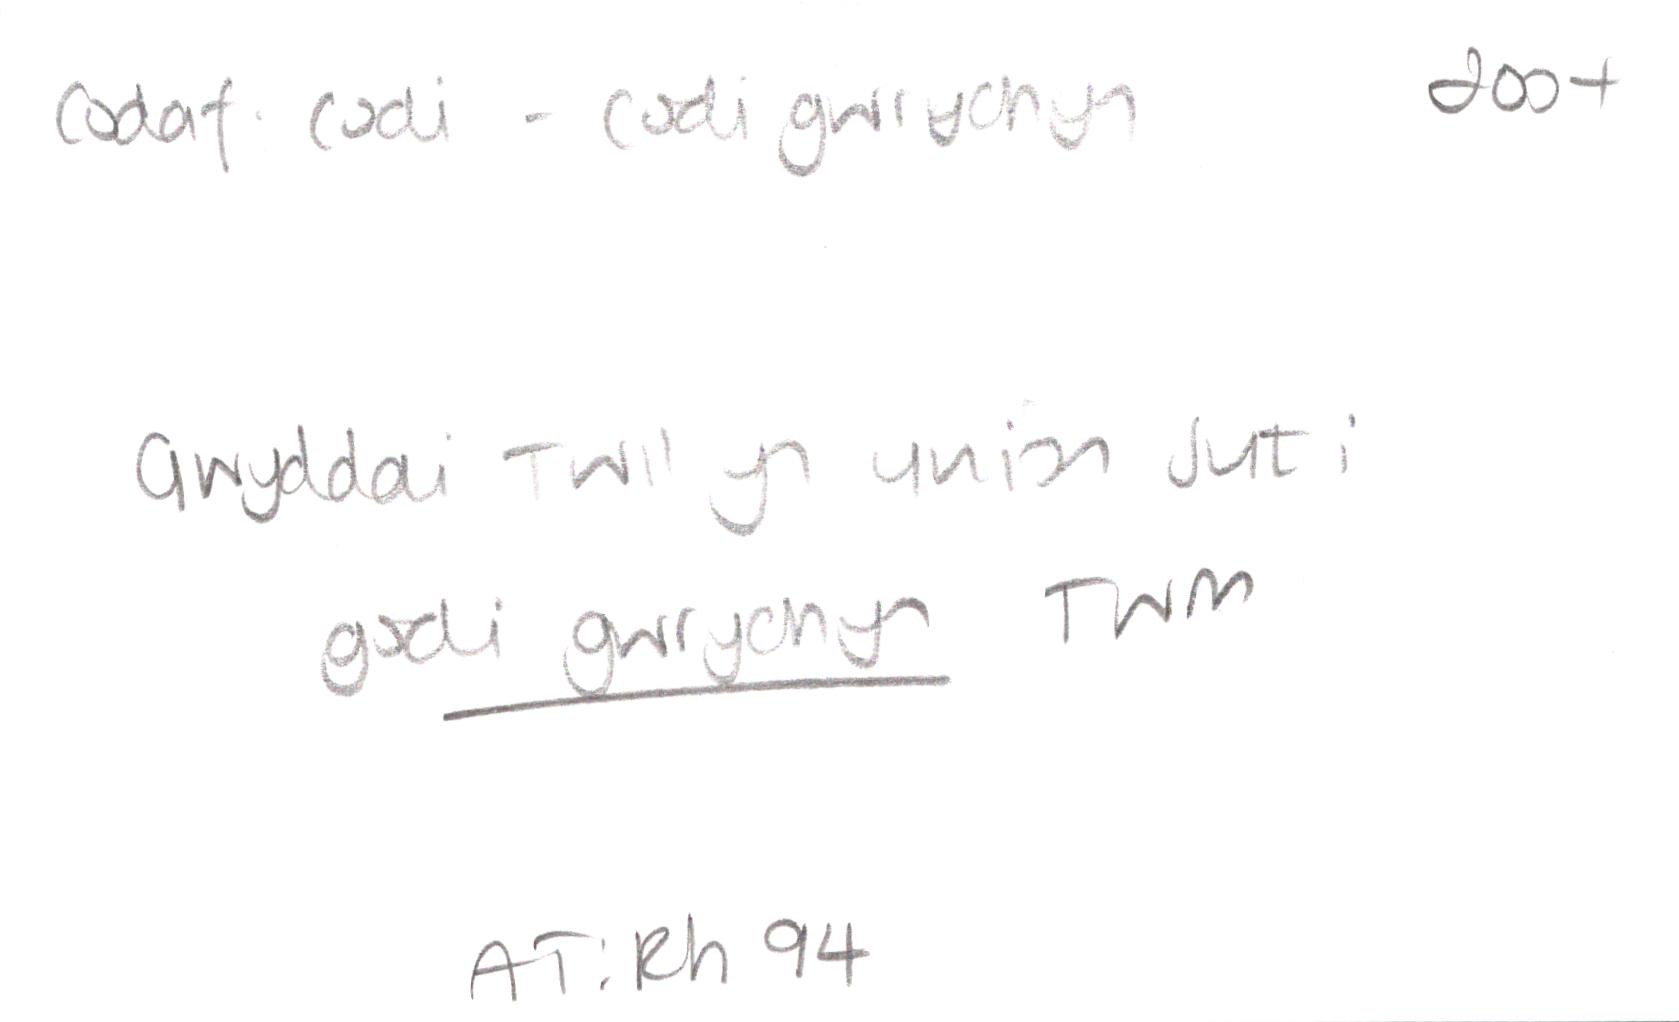 codaf: codi - codi gwrychyn 200+
Gwyddai Twil yn union sut i
godi gwrychyn Twm
AT: Rh 94